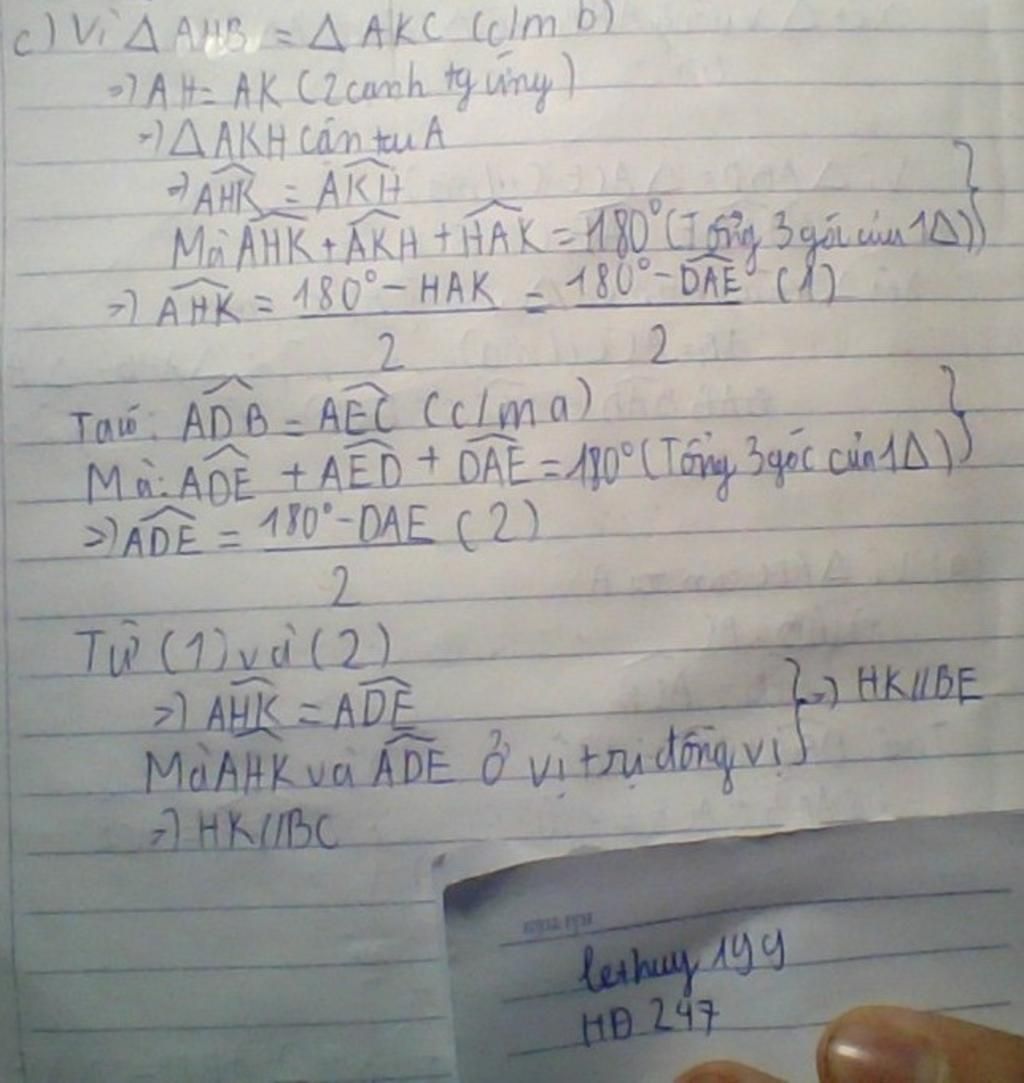 c) Vì Δ AHB = Δ AKC (c/m b)
=> AH = AK (2 cạnh tg ứng)
=> Δ AKH cân tại A
=> \widehat{AHK} = \widehat{AKH}
Mà \widehat{AHK} + \widehat{AKH} + \widehat{HAK} = 180° (Tổng 3 góc của 1Δ) }
=> \widehat{AHK} = \frac{180° - HAK}{2} = \frac{180° - \widehat{DAE}}{2} (1)
Ta có: \widehat{ADB} = \widehat{AEC} (c/m a)
Mà: \widehat{ADE} + \widehat{AED} + \widehat{DAE} = 180° (Tổng 3 góc của 1Δ) }
=> \widehat{ADE} = \frac{180° - DAE}{2} (2)
Từ (1) và (2)
=> \widehat{AHK} = \widehat{ADE}
Mà \widehat{AHK} và \widehat{ADE} ở vị trị đồng vị } => HK // BE
=> HK // BC
lethuy 199
HD 247